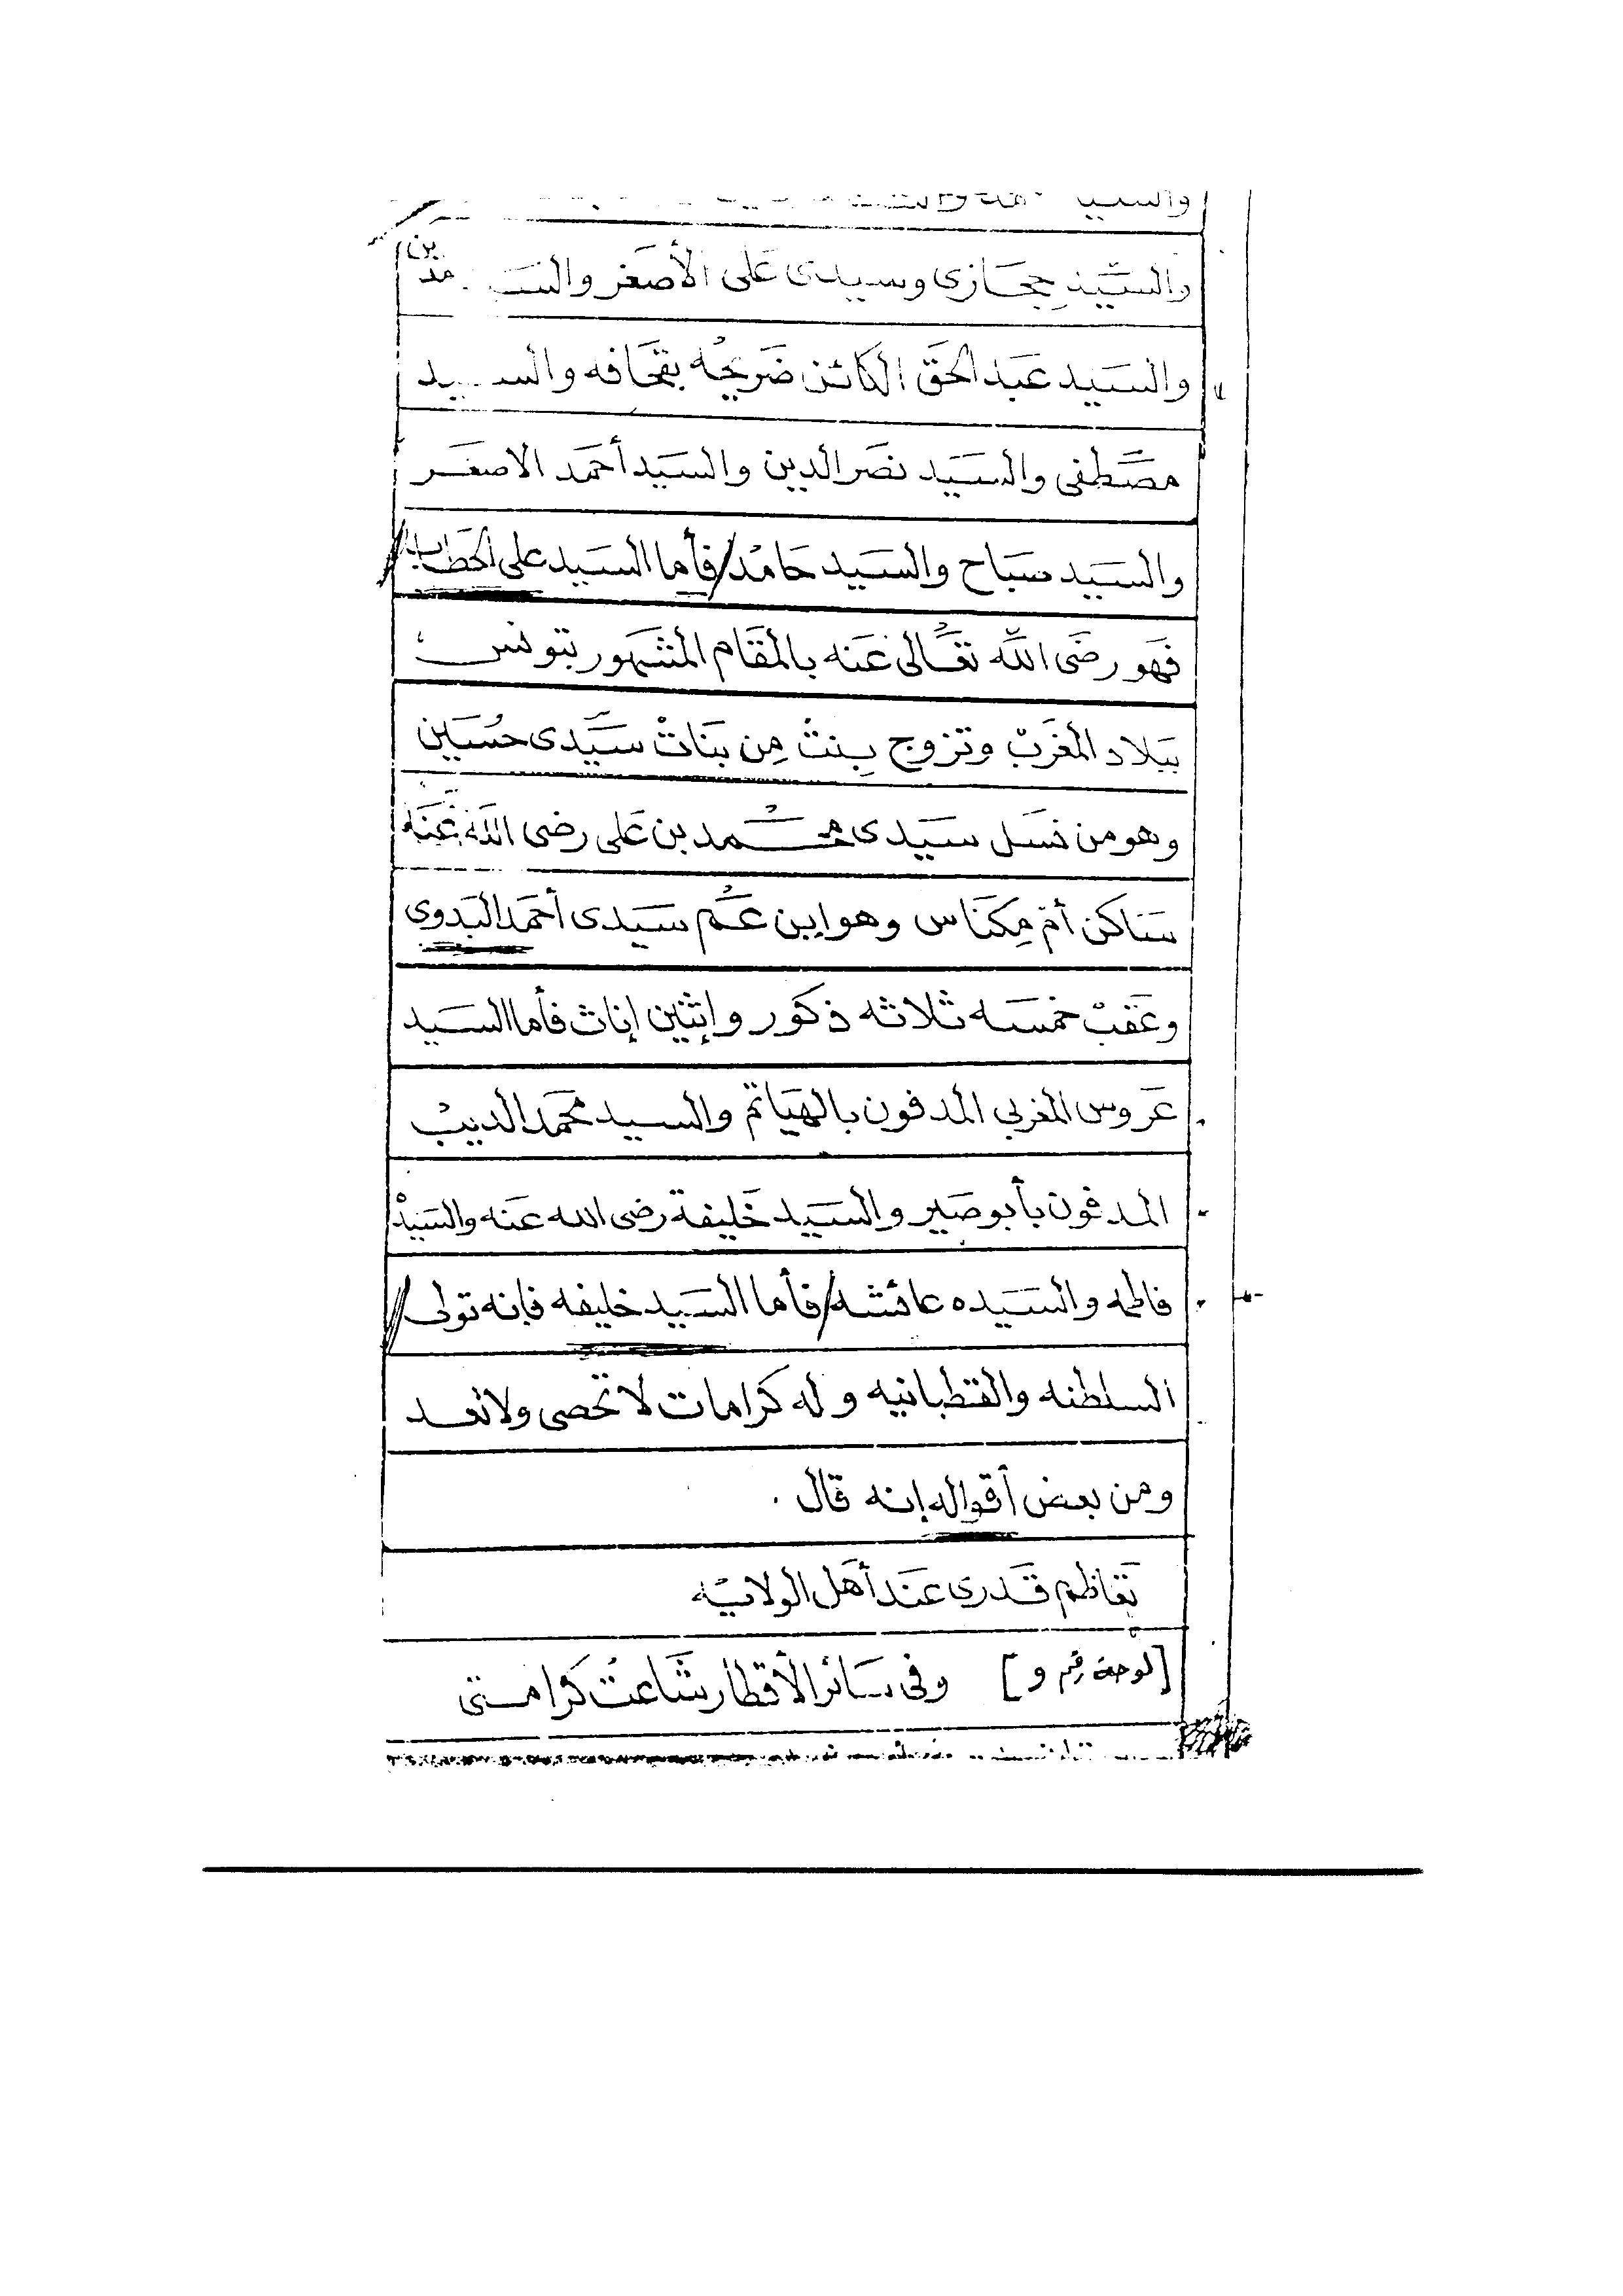 والسيد حجازى وسيدى على الأصغر والسيد مدين
والسَيد عَبد الحَق الكائن ضَريحُه بقحَافه والسيد
مصَّطفى والسَيد نصَر الدين والسَيد أحمَد الاصغَر
والسَيد صَباح والسَيد حَامدْ/فأما السَيد على الحَطاب
فَهو رضَى اللَّه تعَالى عَنه بالمقَام المشَهور بتونس
ببَلاد المغَربْ وتزوج بِنتْ مِن بَناتْ سَيَّدى حسُين
وهو من نسَل سَيَدى محُـَـمد بن عَلى رضى اللَه عَنه
سَاكن أمّ مِكنَاس وهو إبن عَـُم سَيَدى أحمَد البَدوى
وعَقبْ خمسَه ثلاثه ذكَور وإثنين إناث فأما السَيد
عَروس المغربى المدفون بالهيَاتم والسيد محَمد الديبْ
المدفون بأبو صَير والسَيد خَليفة رضى الله عَنه والسَيدْ
فاطمه والسَيده عائشه/فأما السَيد خليفه فإنه تولى
السلطنه والقطبانيه وله كرامات لا تحصى ولا تعد
ومن بعض أقواله إنه قال .
تعَاظم قَدرى عَند أهَل الولايَه
[لوحة رقم و] وفى سَائر الأقطار شَاعتْ كَرامتى